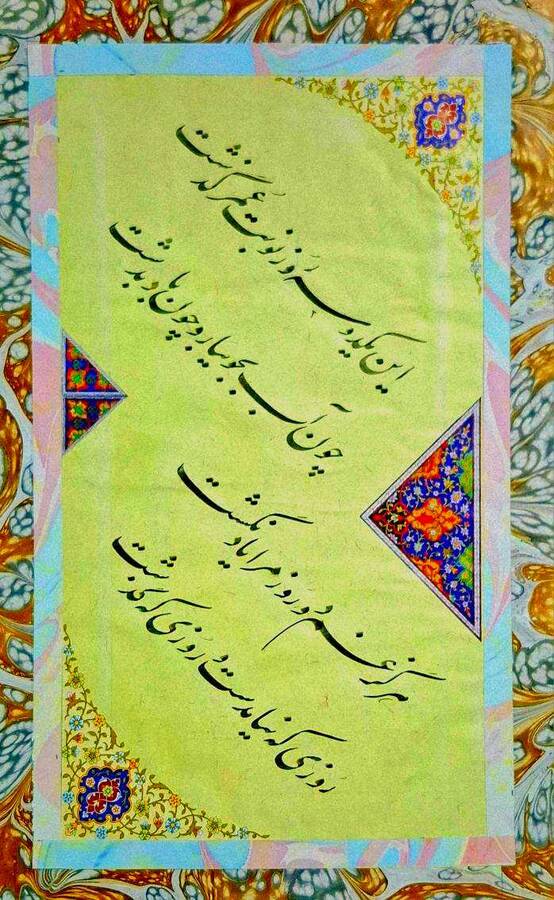 این یکدو سه روز نوبت عمر گذشت
چون آب بجویبار و چون باد بدشت
هرگز غم دو روز مرا یاد نگشت
روزی که نیامدست و روزی که گذشت